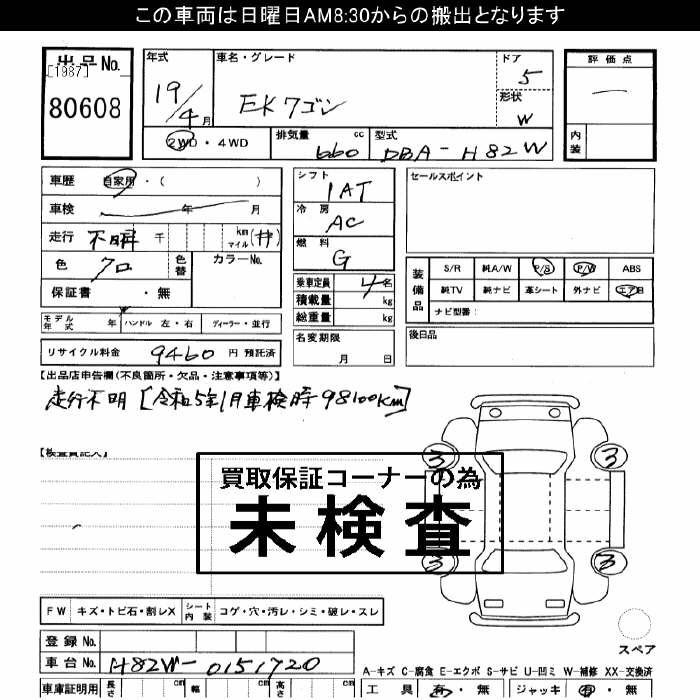 この車両は日曜日AM8:30からの搬出となります
出品No.
[1987]
80608
年式
19/4月
車名・グレード
EKワゴン
ドア
5
形状
W
評価点
内装
2WD・4WD
排気量 660 cc
型式 DBA-H82W
車歴 自家用・( )
車検 年 月
走行 不明 千 km マイル (#)
色 クロ 色替
カラーNo.
保証書 ・無
シフト
IAT
冷房
AC
燃料
G
乗車定員 4名
積載量 kg
総重量 kg
名変期限
月 日
セールスポイント
装備品
S/R 純A/W P/S P/W ABS
純TV 純ナビ 革シート 外ナビ エアB
ナビ型番:
後日品
モデル年式 年 ハンドル 左・右 ディーラー・並行
リサイクル料金 9460 円 預託済
【出品店申告欄(不良箇所・欠品・注意事項等)】
走行不明 [令和5年1月車検時 98100km]
【検査員記入】
買取保証コーナーの為
未検査
3 3
3 3
FW キズ・トビ石・割レX シート内装 コゲ・穴・汚レ・シミ・破レ・スレ
スペア
登録No.
車台No. H82W-0151720
A-キズ C-腐食 E-エクボ S-サビ U-凹ミ W-補修 XX-交換済
車庫証明用 長さ cm 幅 cm 高さ cm
工具 有・無 ジャッキ 有・無